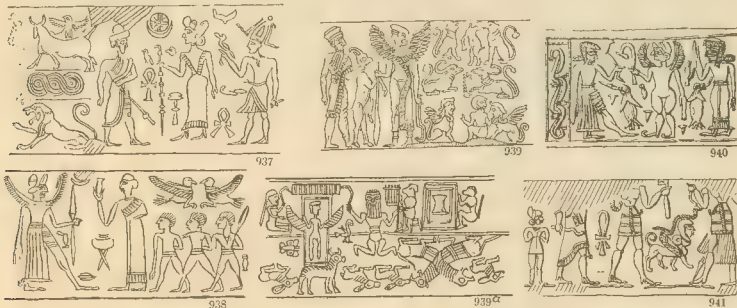 937
939
940
938
939a
941